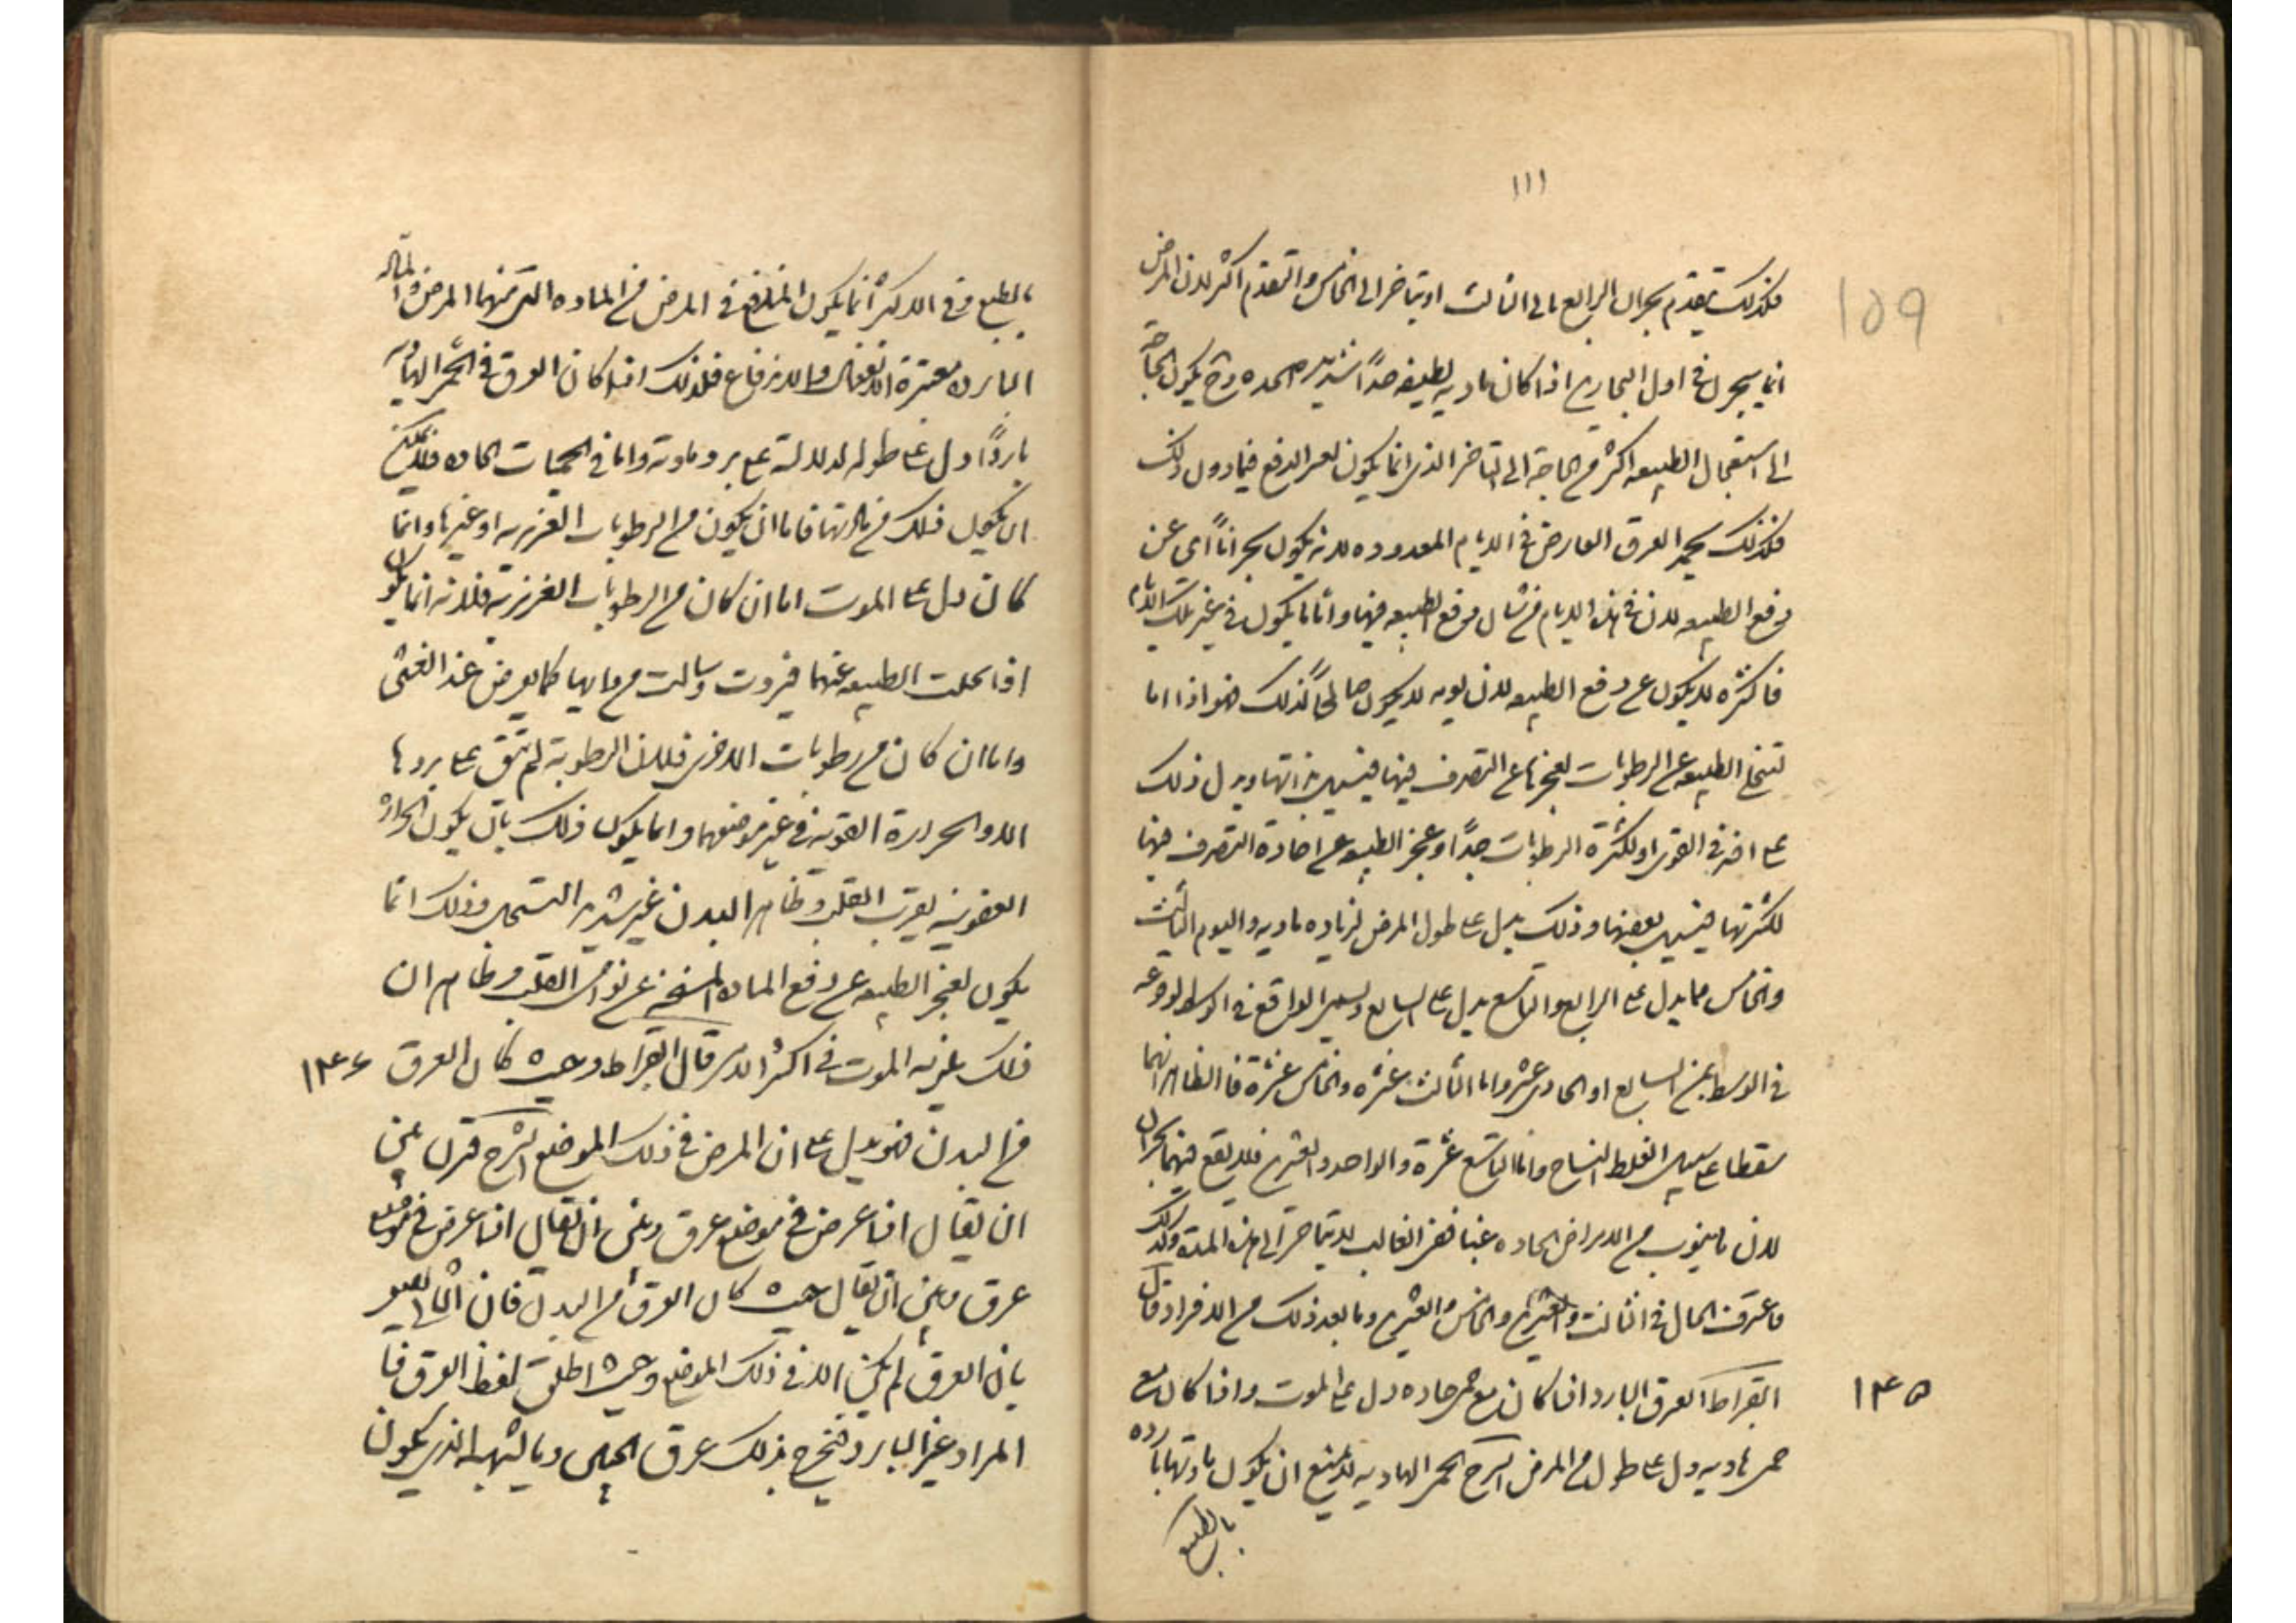 ١١١
159
فكذلك يتقدم بحران الرابع الى الثالث او يتاخر الى الخامس والتقدم اكثر لان المرض
انما يبحرن في اول البحارين اذا كان ماديه لطيفه جداً شديد الحده وح يكون الحاجة
الى استعجال الطبيعه اكثر من الحاجة الى التاخر الذى انما يكون لعسر الدفع فيما دون ذلك
فكذلك يحمد العرق العارض في الايام المعدوده لانه يكون بحراناً اى عن
دفع الطبيعه لان في هذه الايام من شان دفع الطبيعه فيها واما ما يكون في غير تلك الايام
فاكثره لا يكون عن دفع الطبيعه لان يومه لا يكون صالحاً لذلك فهو اذا اما
لتخلى الطبيعه عن الرطوبات لعجزها عن التصرف فيها فيسيل بذاتها ويدل ذلك
على افه في القوى او لكثرة الرطوبات جداً وعجز الطبيعه عن اجادة التصرف فيها
لكثرتها فيسيل بعضها وذلك يدل على طول المرض لزياده ماديه واليوم الثالث
والخامس مما يدل على الرابع والتاسع يدل على السابع وليس الواقع في الوسط لوقوعه
في الوسط بين السابع او الحادى عشر واما الثالث عشره والخامس عشرة فالظاهر انهما
سقطا على سبيل الغلط النساخ واما التاسع عشرة والواحد والعشرين فلا يقع فيهما بحران
لان ما ينوب من الامراض الحاده غبا ففى الغالب لا يتاخر الى هذه المدة وكذلك
ما عرفت الحال في الثالث والعشرين والخامس والعشرين وما بعد ذلك من الافراد قال
ابقراط العرق البارد اذا كان مع حمى حاده دل على الموت واذا كان مع ١٤٥
حمى هاديه دل على طول من المرض الشرح الحمى الهاديه لا يمتنع ان يكون مادتها بارده
بالطبع
بالطبع وفي الاكثر انما يكون المندفع في المرض من الماده التى منها المرض والماده
البارده معسرة الانفعال والاندفاع فلذلك اذا كان العرق في الحمى الهاديه
بارداً دل على طوله لدلالته على برد مادته واما في الحميات الحاده فلا يمكن
ان يكون ذلك من مادتها فاما ان يكون من الرطوبات الغريزيه او غيرها وانما
كان دل على الموت اما ان كان من الرطوبات الغريزيه فلانه انما يكون
اذا تخلت الطبيعه عنها فبردت وسالت من ذاتها كما يعرض عند الغشى
واما ان كان من رطوبات الاخرى فلان الرطوبة لم تبق على بردها
الا والحرارة القويه في غير موضعها وانما يكون ذلك بان يكون الحرارة
العفونيه بقرب القلب وظاهر البدن غير شديد التسخن وذلك انما
يكون لعجز الطبيعه عن دفع الماده المسخنه عن نواحى القلب وظاهر ان
ذلك يلزمه الموت في اكثر الامر قال ابقراط وحيث كان العرق ١٤٦
من البدن فهو يدل على ان المرض في ذلك الموضع الشرح فرق بين
ان يقال اذا عرض في موضع عرق وبين ان يقال اذا عرض في موضع
عرق وبين ان يقال حيث كان العرق من البدن فان الثانى يعبر
بان العرق لم يكن الا في ذلك الموضع وحيث اطلق لفظ العرق فا
المراد غير البارد فيخرج بذلك عرق الجبين وما يشبهه الذى يكون